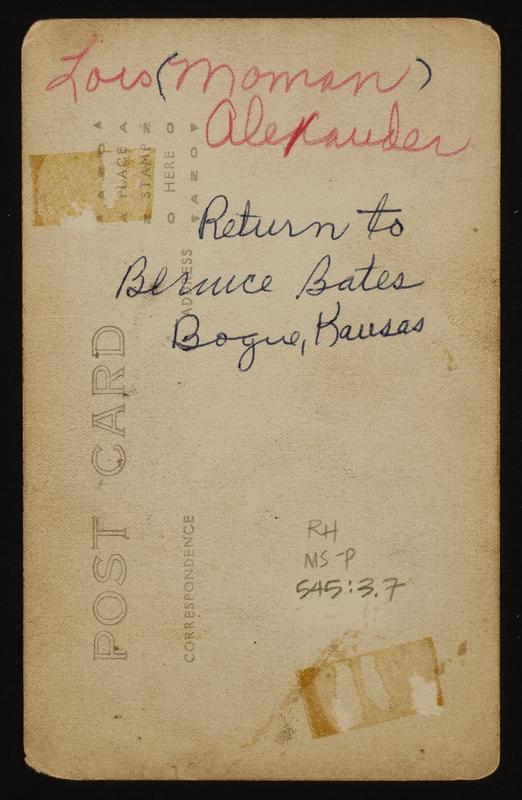 Lois (Moman)
Alexander
Return to
Bernice Bates
Bogue, Kansas
RH
MS-P
545:3.7
POST CARD
CORRESPONDENCE
ADDRESS
PLACE
STAMP
HERE
AZO